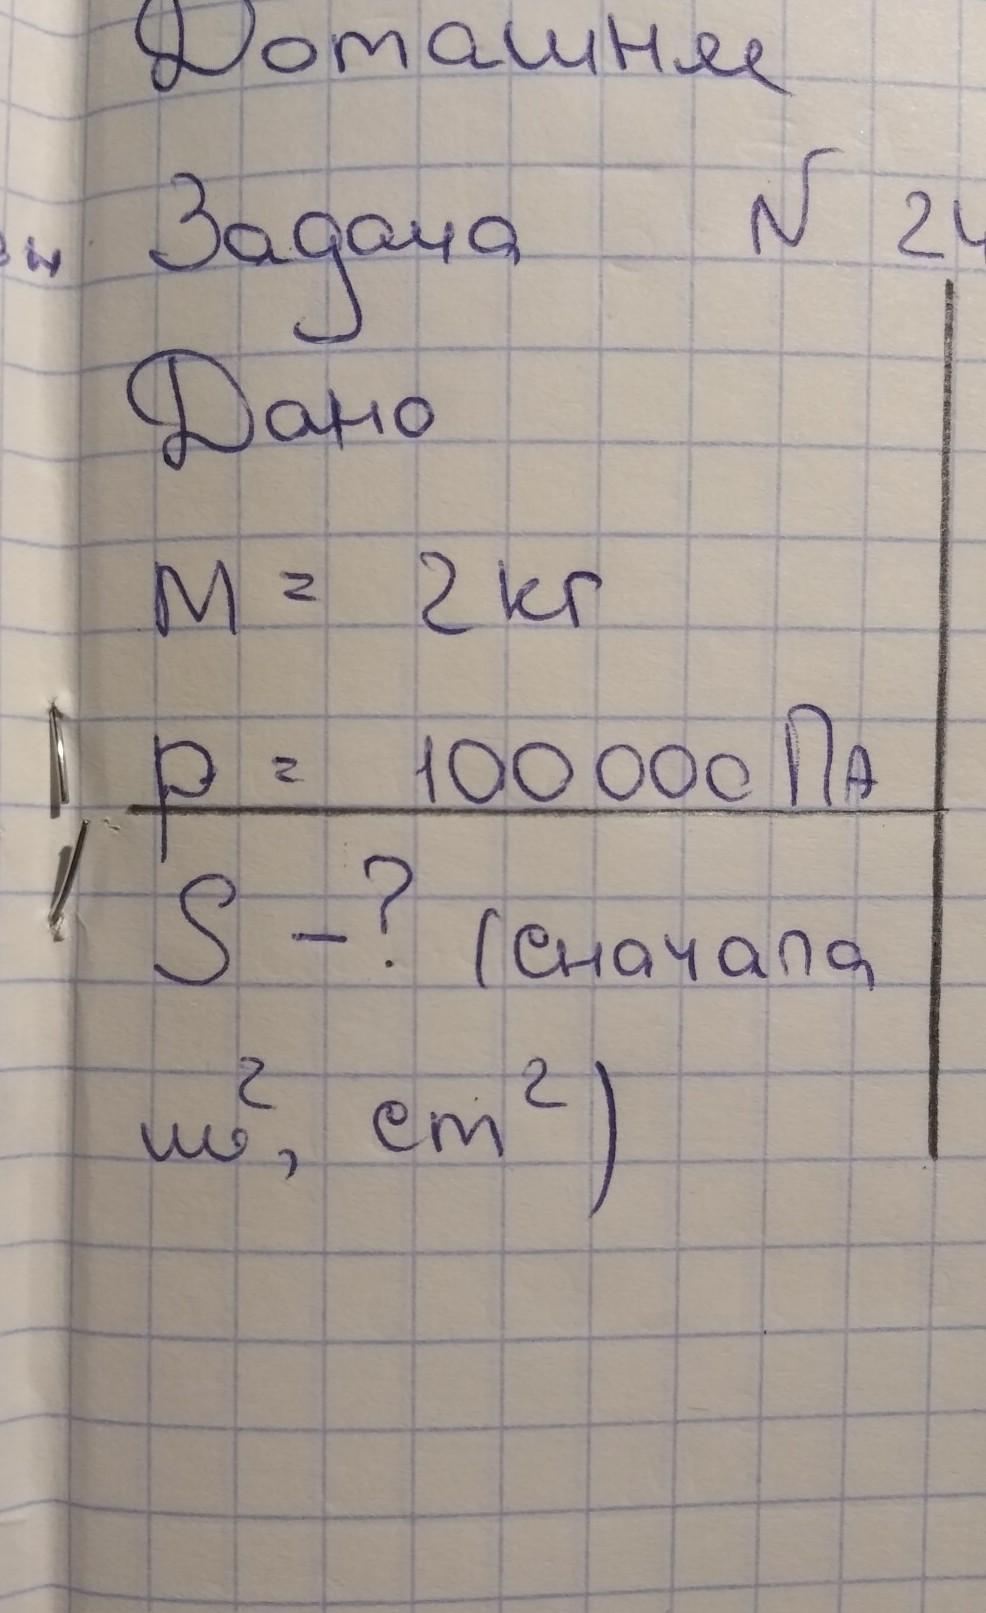 Домашнее
Задача N 24
Дано
M = 2кг
p = 100000Па
S - ? (сначала
м², cm²)